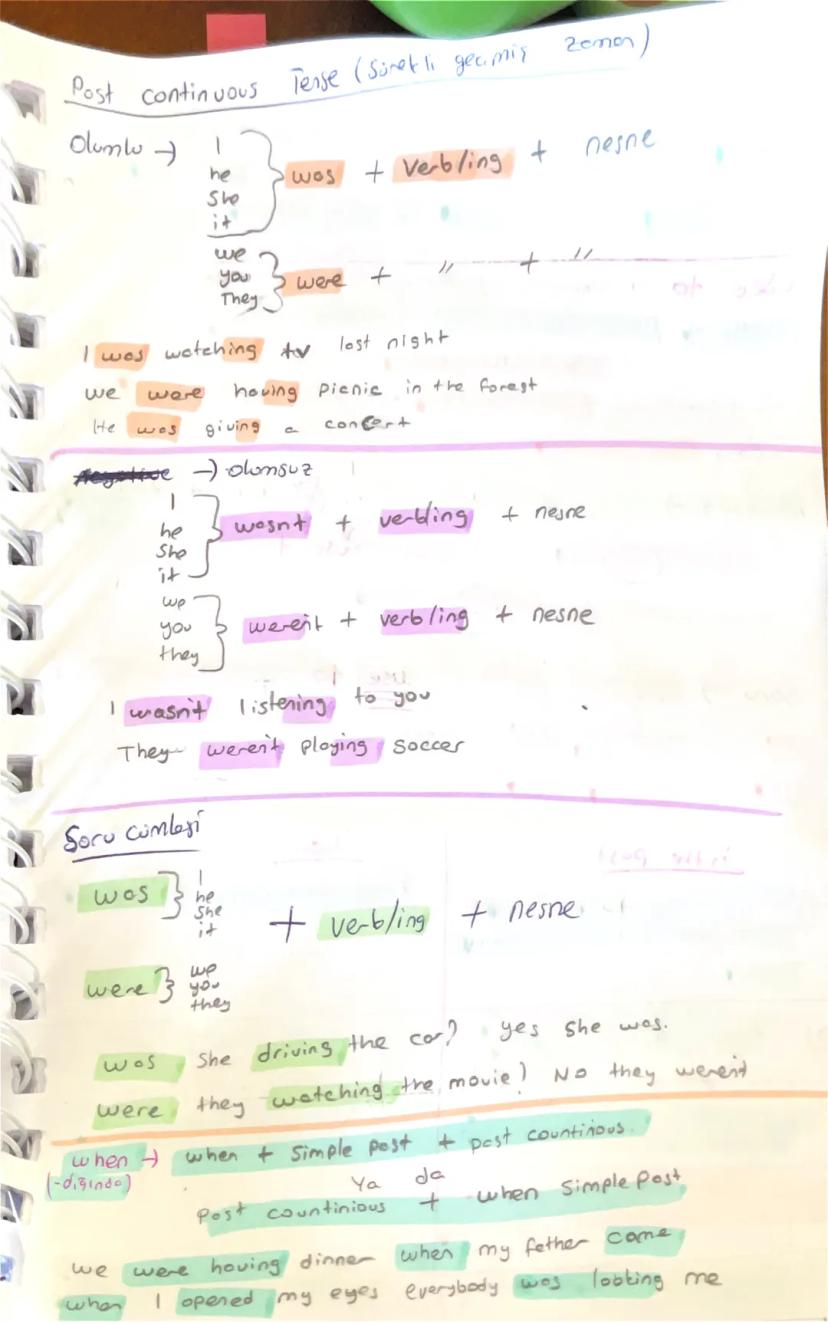 Past continuous Tense (Sürekli geçmiş zaman)
Olumlu → I
he
she
it
was + Verb/ing + nesne
we
you
They
were + " + "
I was watching tv last night
we were having picnic in the forest
He was giving a concert
negative → olumsuz
I
he
she
it
wasnt + verb/ing + nesne
we
you
they
weren't + verb/ing + nesne
I wasn't listening to you
They weren't playing soccer
Soru cümlesi
was
I
he
she
it
+ verb/ing + nesne
were
we
you
they
was she driving the car? yes she was.
were they watching the movie? No they weren't
when → when + simple past + past countinious.
(-dığında)
Ya da
past countinious + when simple past
we were having dinner when my father came
when I opened my eyes everybody was looking me